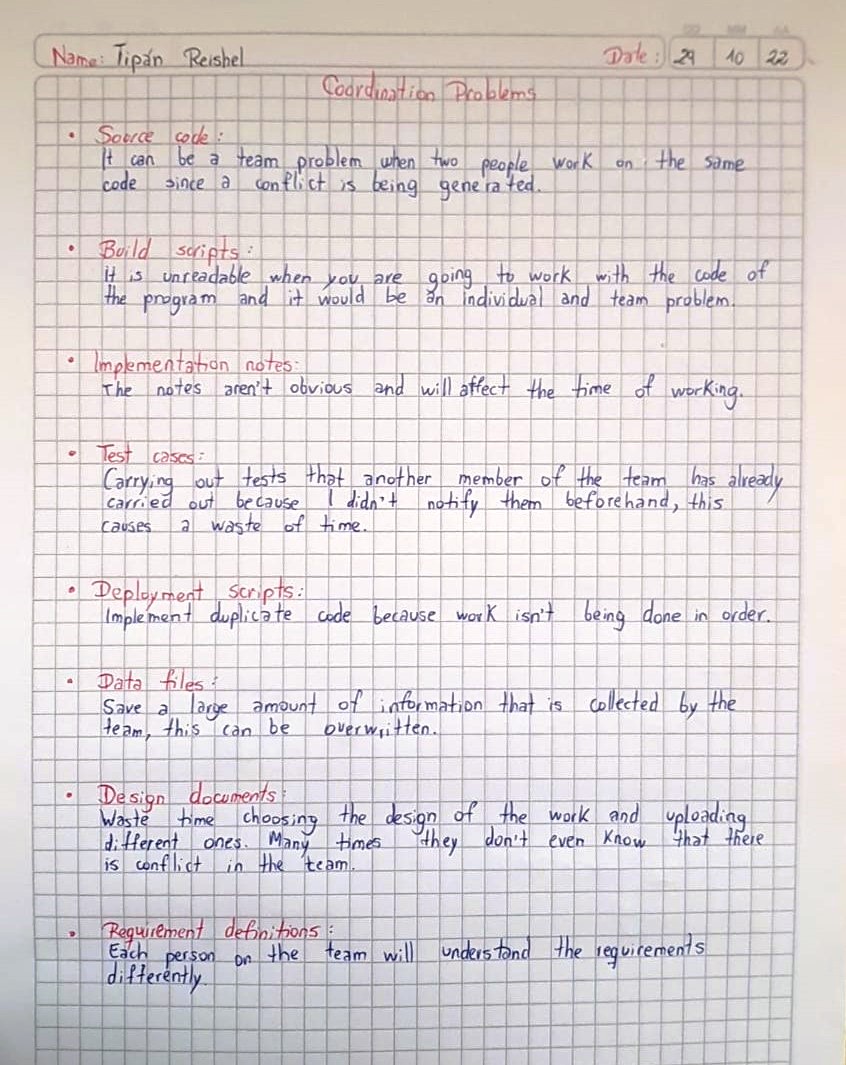 Name: Tipán Reishel Date: 29 10 22
Coordination Problems
• Source code:
It can be a team problem when two people work on the same
code since a conflict is being generated.
• Build scripts:
It is unreadable when you are going to work with the code of
the program and it would be an individual and team problem.
• Implementation notes:
The notes aren't obvious and will affect the time of working.
• Test cases:
Carrying out tests that another member of the team has already
carried out because I didn't notify them beforehand, this
causes a waste of time.
• Deployment scripts:
Implement duplicate code because work isn't being done in order.
• Data files:
Save a large amount of information that is collected by the
team, this can be overwritten.
• Design documents:
Waste time choosing the design of the work and uploading
different ones. Many times they don't even know that there
is conflict in the team.
• Requirement definitions:
Each person on the team will understand the requirements
differently.